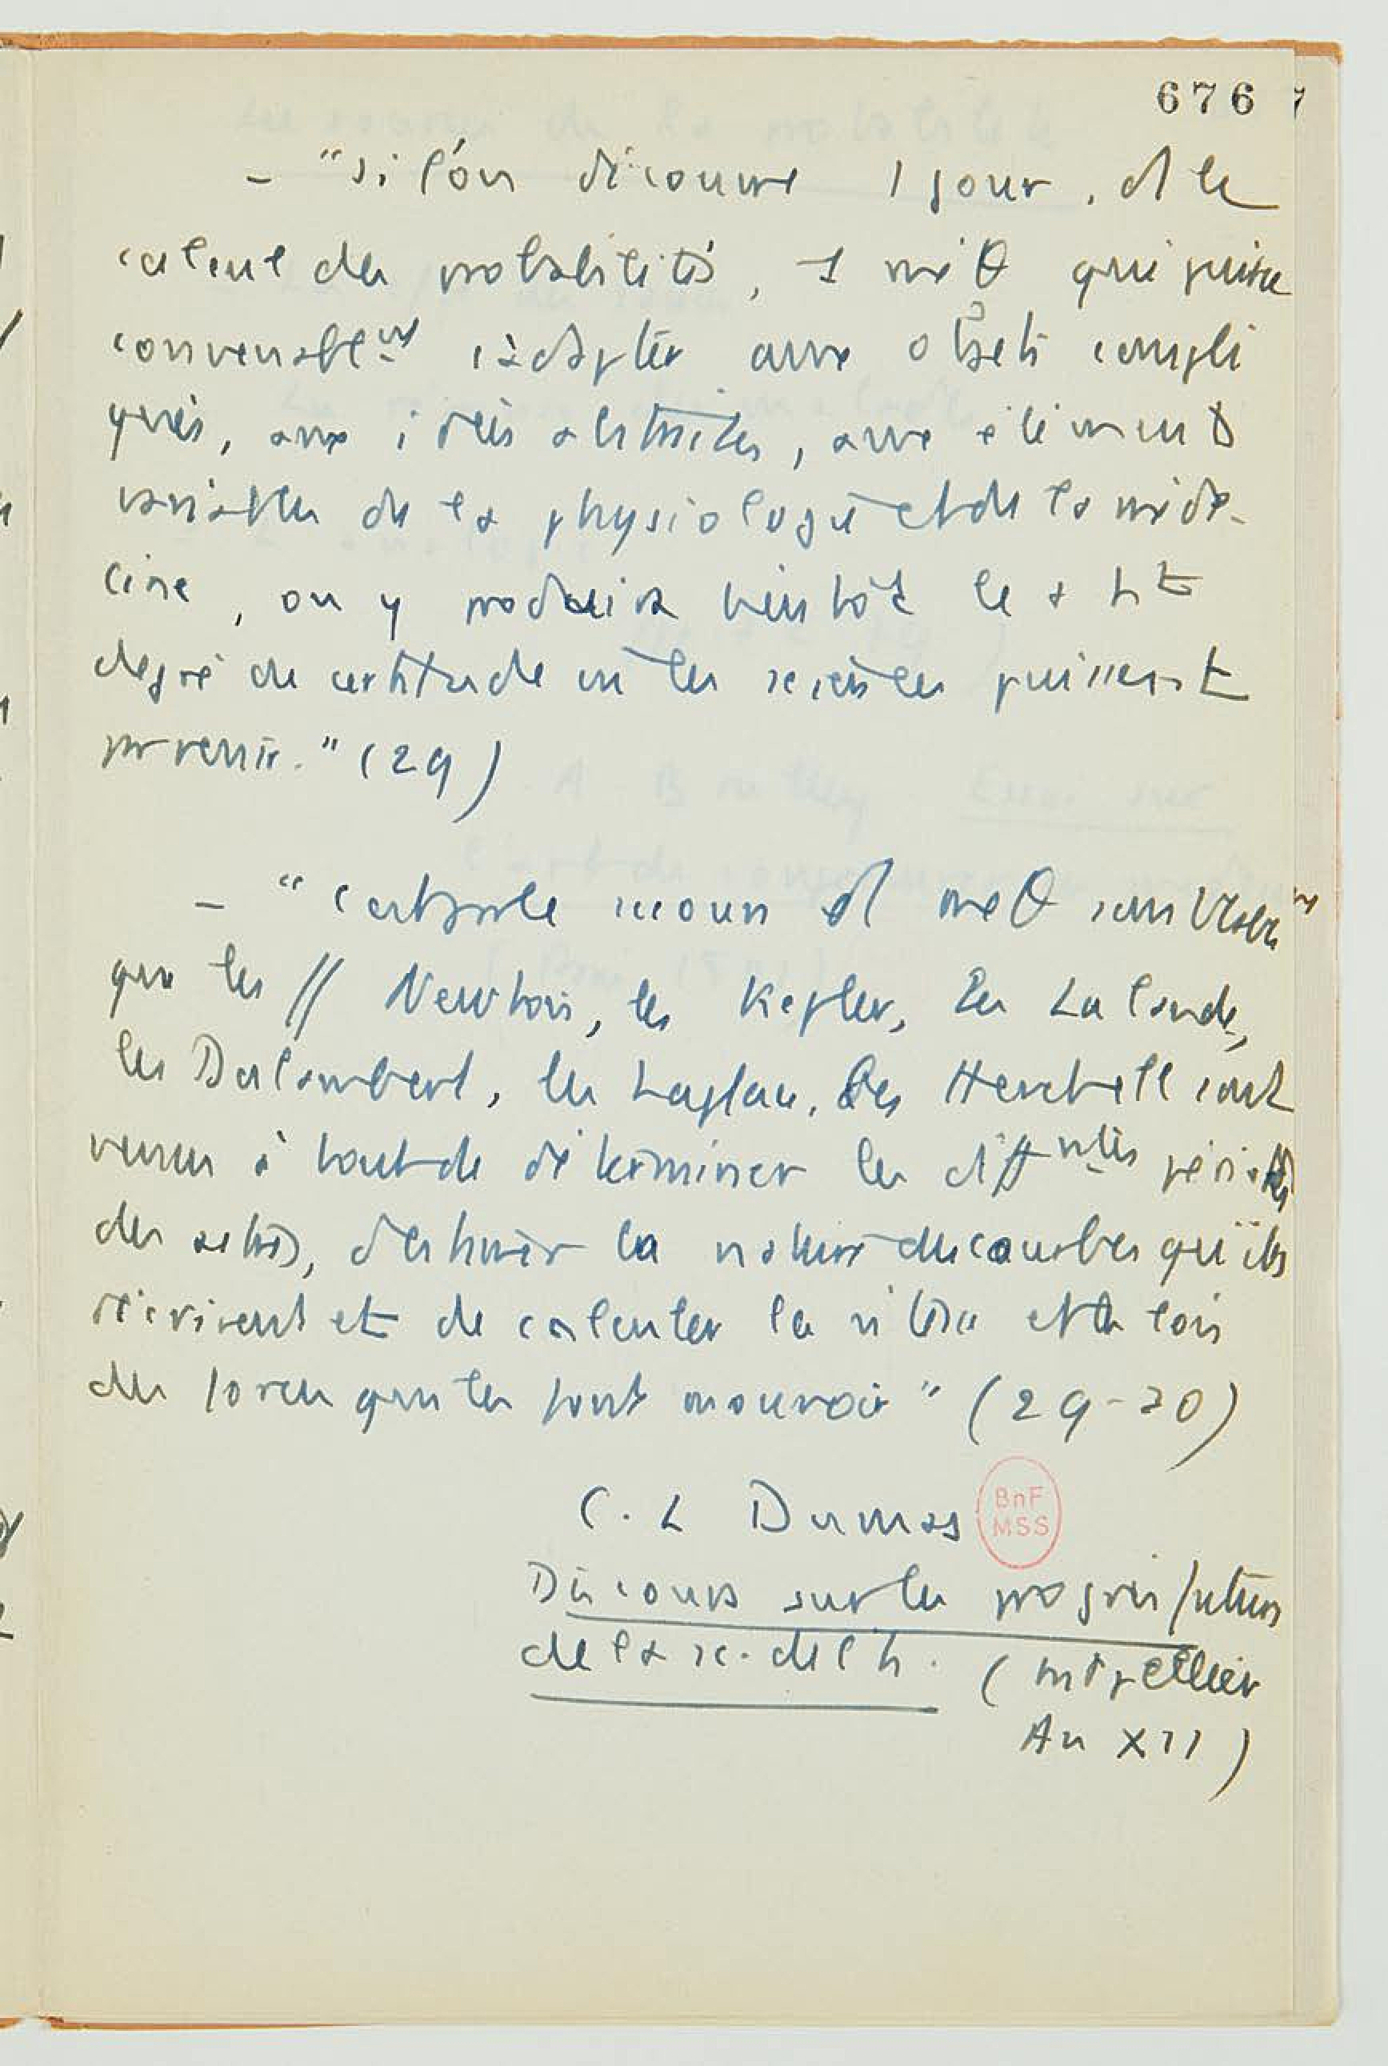 676
- "Si l'on découvre 1 jour, ds le
calcul des probabilités, 1 méθ qui puisse
convenablemt s'adapter aux objets compli
qués, aux idées abstraites, aux éléments
variables de la physiologie et de la méde-
cine, on y produira bientôt le + ht
degré de certitude où les sciences puissent
parvenir." (29)
- "C'est par le secours d'1 méθ
que les // Newton, les Kepler, les La Lande,
les Dalembert, les Laplace, les Herschell sont
venus à bout de déterminer les diffntes
des astres, d'estimer la nature des courbes qu'ils
décrivent et de calculer la vitesse et les lois
des forces qui les font mouvoir" (29-30)
C. L Dumas
BnF
MSS
Discours sur les progrès futurs
de la sc. de l'h. (Mtpellier
An XII)